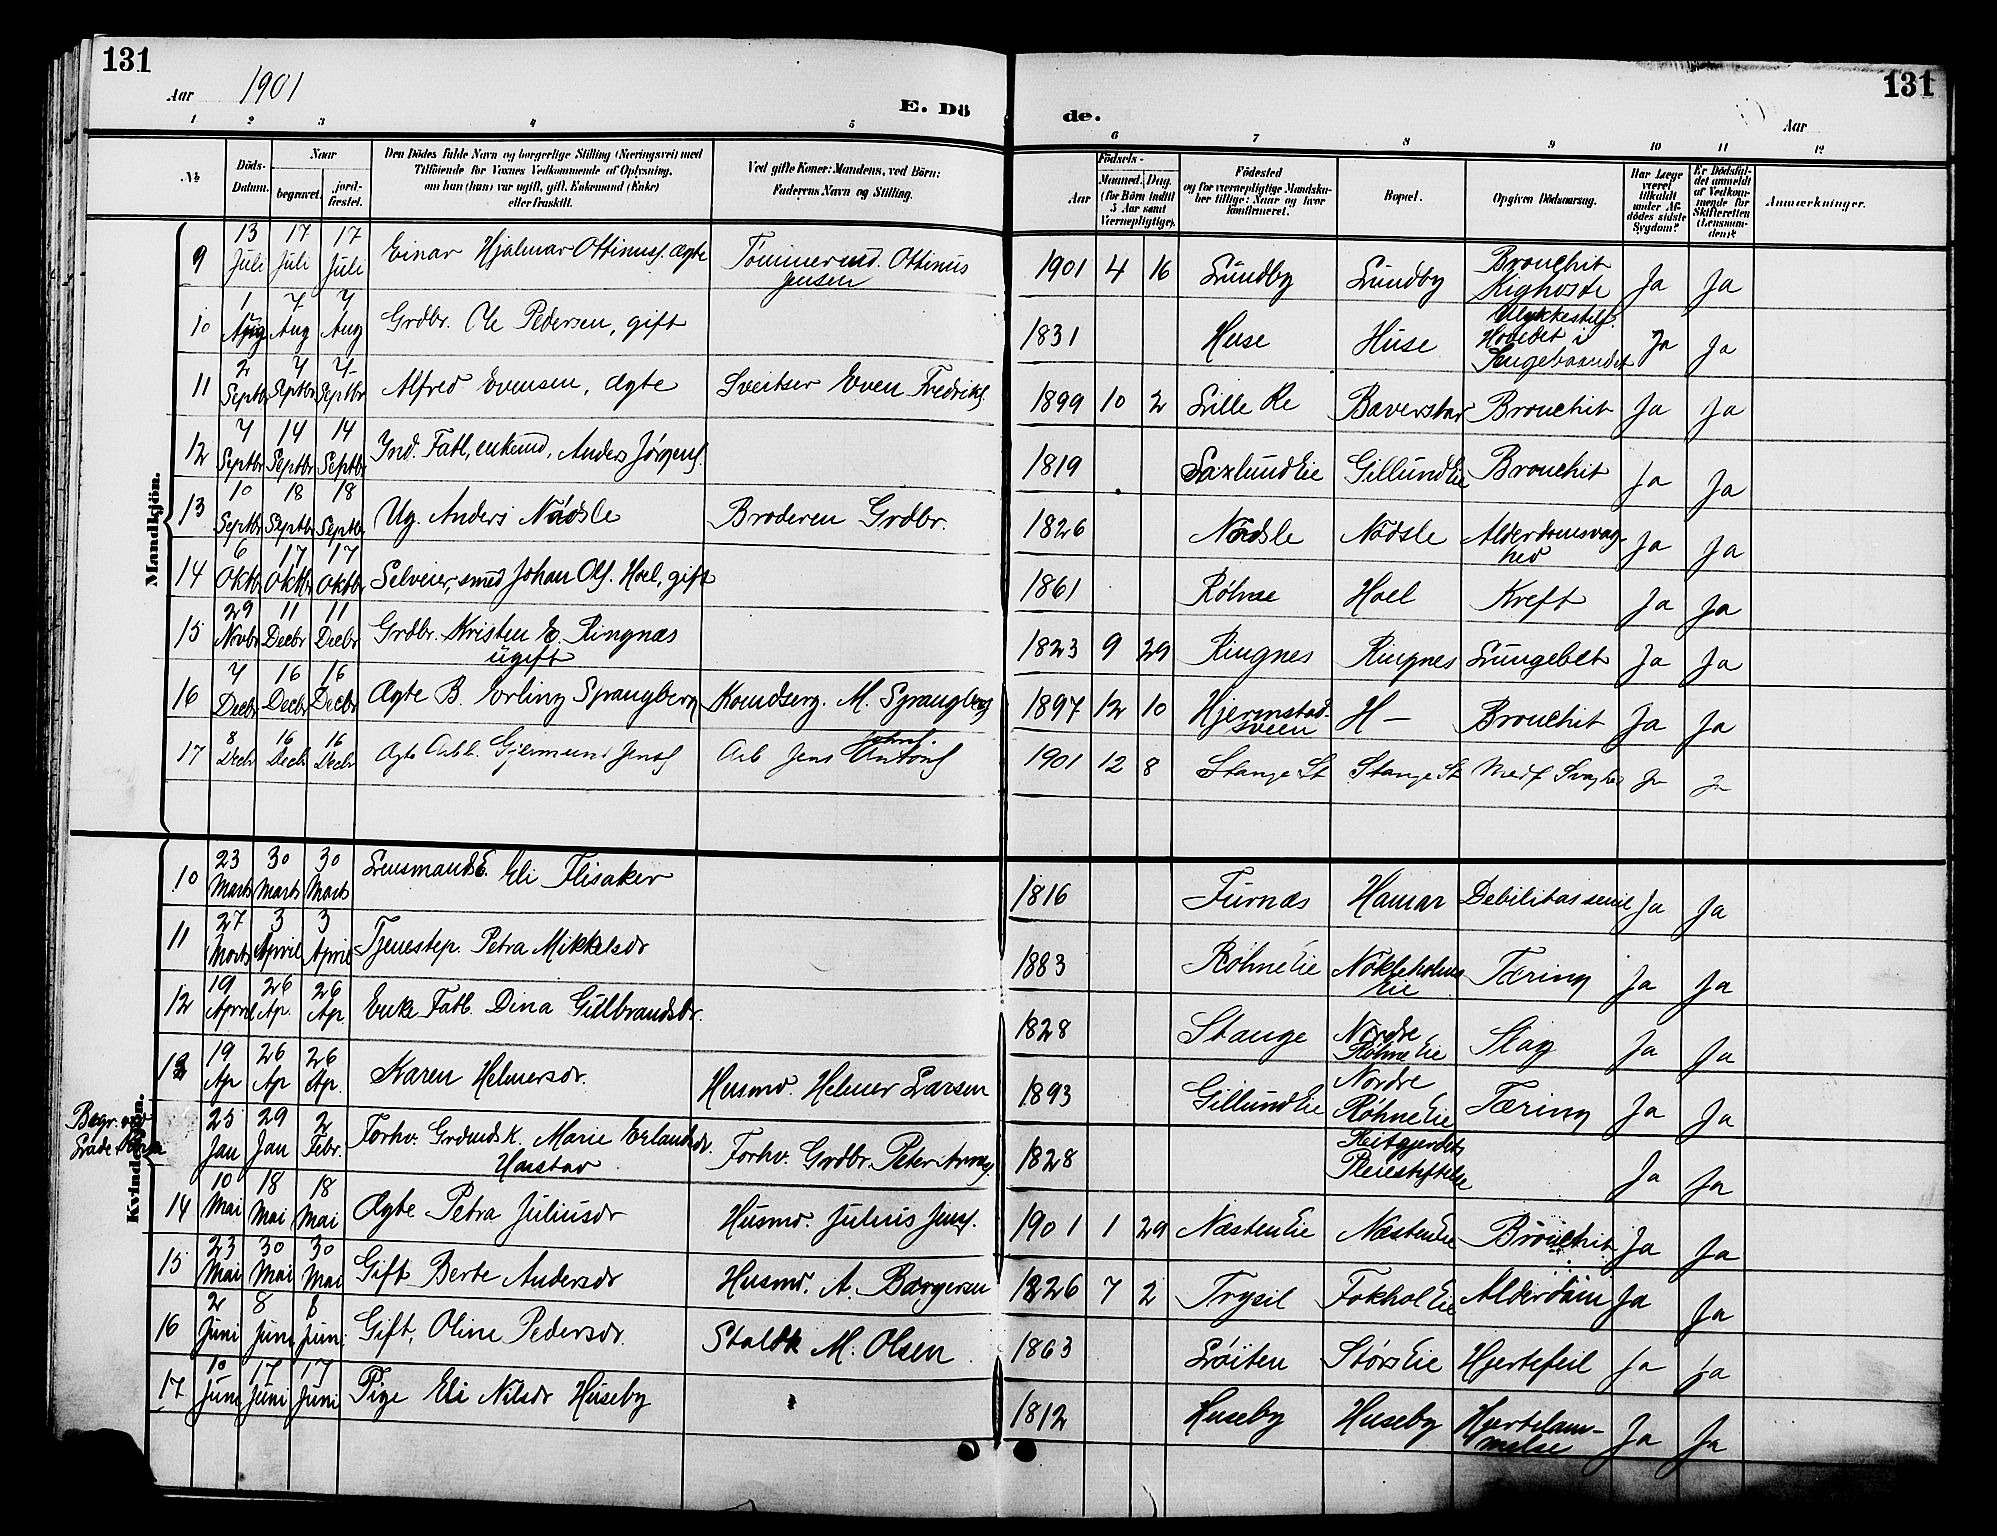 131
131
Aar 1901
E. Dö de.
Aar
1 2 3 4 5 6 7 8 9 10 11 12
№
Döds-
Datum.
Naar
begravet.
jord-
fæstet.
Den Dödes fulde Navn og borgerlige Stilling (Næringsvei) med
Tilföiende for Voxnes Vedkommende af Oplysning,
om han (hun) var ugift, gift, Enkemand (Enke)
eller fraskilt.
Ved gifte Koner: Mandens, ved Börn:
Faderens Navn og Stilling.
Födsels-
Aar
Maaned. Dag.
(for Börn indtil
5 Aar samt
Værnepligtige).
Födested
og for værnepligtige Mandsku-
ber tillige: Naar og hvor
konfirmeret.
Bopæl.
Opgiven Dödsaarsag.
Har Læge
været
tilkaldt
under Af-
dödes sidste
Sygdom?
Er Dödsfal-
det anmeldt
af Vedkom-
mende for
Skifteretten
(Lensman-
den)?
Anmærkninger.
Mandkjön.
9 13 Juli 17 Juli 17 Juli Einar Hjalmar Ottinus. ægte Tømmermd. Ottinus Jensen 1901 4 16 Lundby Lundby Bronchit Kighoste Ja Ja
10 1 Aug 7 Aug 7 Aug Grdbr. Ole Pedersen, gift 1831 Huse Huse Ulykkestilf. Hovedet i Sengebaandet Ja Ja
11 2 Septbr 7 Septbr 7 Septbr Alfred Evensen, ægte Sveitser Even Fredriks. 1899 10 2 Lille Re Baverstar Bronchit Ja Ja
12 7 Septbr 14 Septbr 14 Septbr Ind. Fatl, enkemd, Anders Jørgens. 1819 Saxlund Eie Gillund Eie Bronchit Ja Ja
13 10 Septbr 18 Septbr 18 Septbr Ug. Anders Nødsle Broderen Grdbr. 1826 Nødsle Nødsle Alderdomsvag- hed Ja Ja
14 6 Oktbr 17 Oktbr 17 Oktbr Selveier, smed Johan Ols. Hoel, gift 1861 Røhne Hoel Kreft Ja Ja
15 29 Novbr 11 Decbr 11 Decbr Grdbr. Kristen E. Ringnæs ugift 1823 9 29 Ringnes Ringnes Lungebet Ja Ja
16 7 Decbr 16 Decbr 16 Decbr Ægte B. Erling Sprangberg M. Sprangberg 1897 12 10 Hjermstad- sveen H— Bronchit Ja Ja
17 8 Decbr 16 Decbr 16 Decbr Ægte Gjermund Jens. Arb Jens Antons. 1901 12 8 Stange St Stange St Medf Svaghed Ja Ja
Kvindekjön.
10 23 Marts 30 Marts 30 Marts Lensmands E. Eli Flisaker 1816 Furnæs Hamar Debilitas senil Ja Ja
11 27 Marts 3 April 3 April Tjenestep. Petra Mikkelsdr 1883 Røhne Eie Nøkleholms Eie Tæring Ja Ja
12 19 April 26 Ap. 26 Ap. Enke Fatl. Dina Gulbrandsdr. 1828 Stange Nordre Røhne Eie Slag Ja Ja
13 19 Ap 26 Ap 26 Ap. Karen Helmersdr. Husmd. Helmer Larsen 1893 Gillund Eie Nordre Røhne Eie Tæring Ja Ja
Begr. ved Lade Kirke 25 Jan 29 Jan 2 Febr. Forhv. Grdmds K. Marie Erlandsdr. Harstad Forhv. Grdbr. Peter Arnes. 1828 Reitgjerdets Pleiestiftelse Ja Ja
14 10 Mai 18 Mai 18 Mai Ægte Petra Juliusdr Husmd. Julius Jens. 1901 1 29 Næsten Eie Næsten Eie Bronchit Ja Ja
15 23 Mai 30 Mai 30 Mai Gift Berte Andersdr Husmd. A. Børgersen 1826 7 2 Trysil Fokhol Eie Alderdom Ja Ja
16 2 Juni 8 Juni 8 Juni Gift, Oline Pedersdr. Staldk M. Olsen 1863 Løiten Størs Eie Hjertefeil Ja Ja
17 10 Juni 17 Juni 17 Juni Pige Eli Nilsdr Huseby 1812 Huseby Huseby Hjertelam- melse Ja Ja